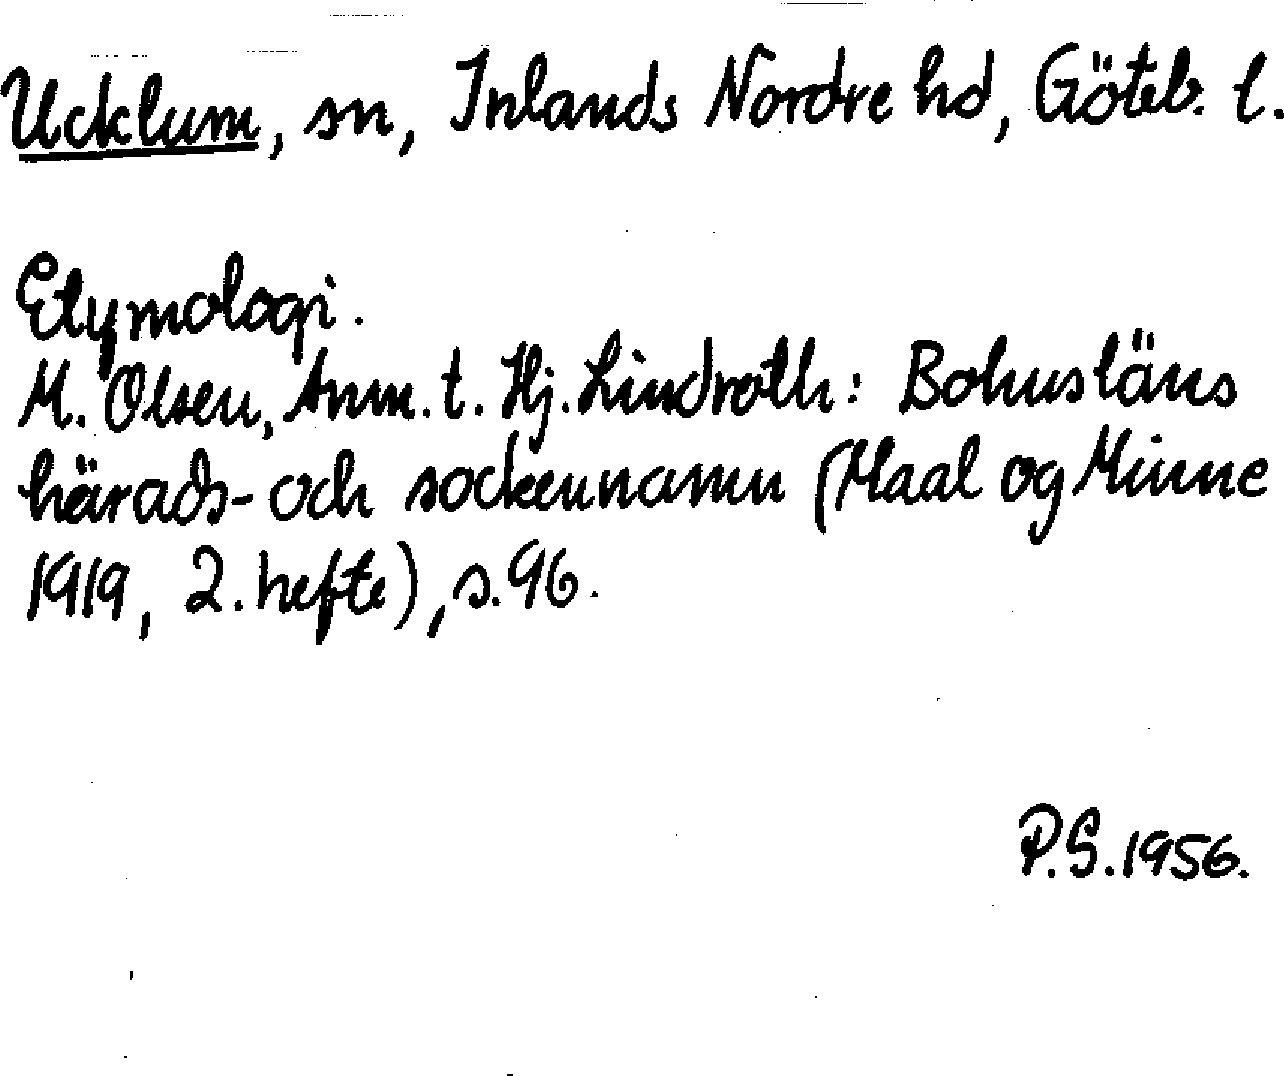 Ucklum, sn, Inlands Nordre hd, Göteb. l.
Etymologi.
M. Olsen, Anm. t. Hj. Lindroth: Bohusläns
härads- och sockennamn (Maal og Minne
1919, 2. hefte), s. 96.
P.S. 1956.